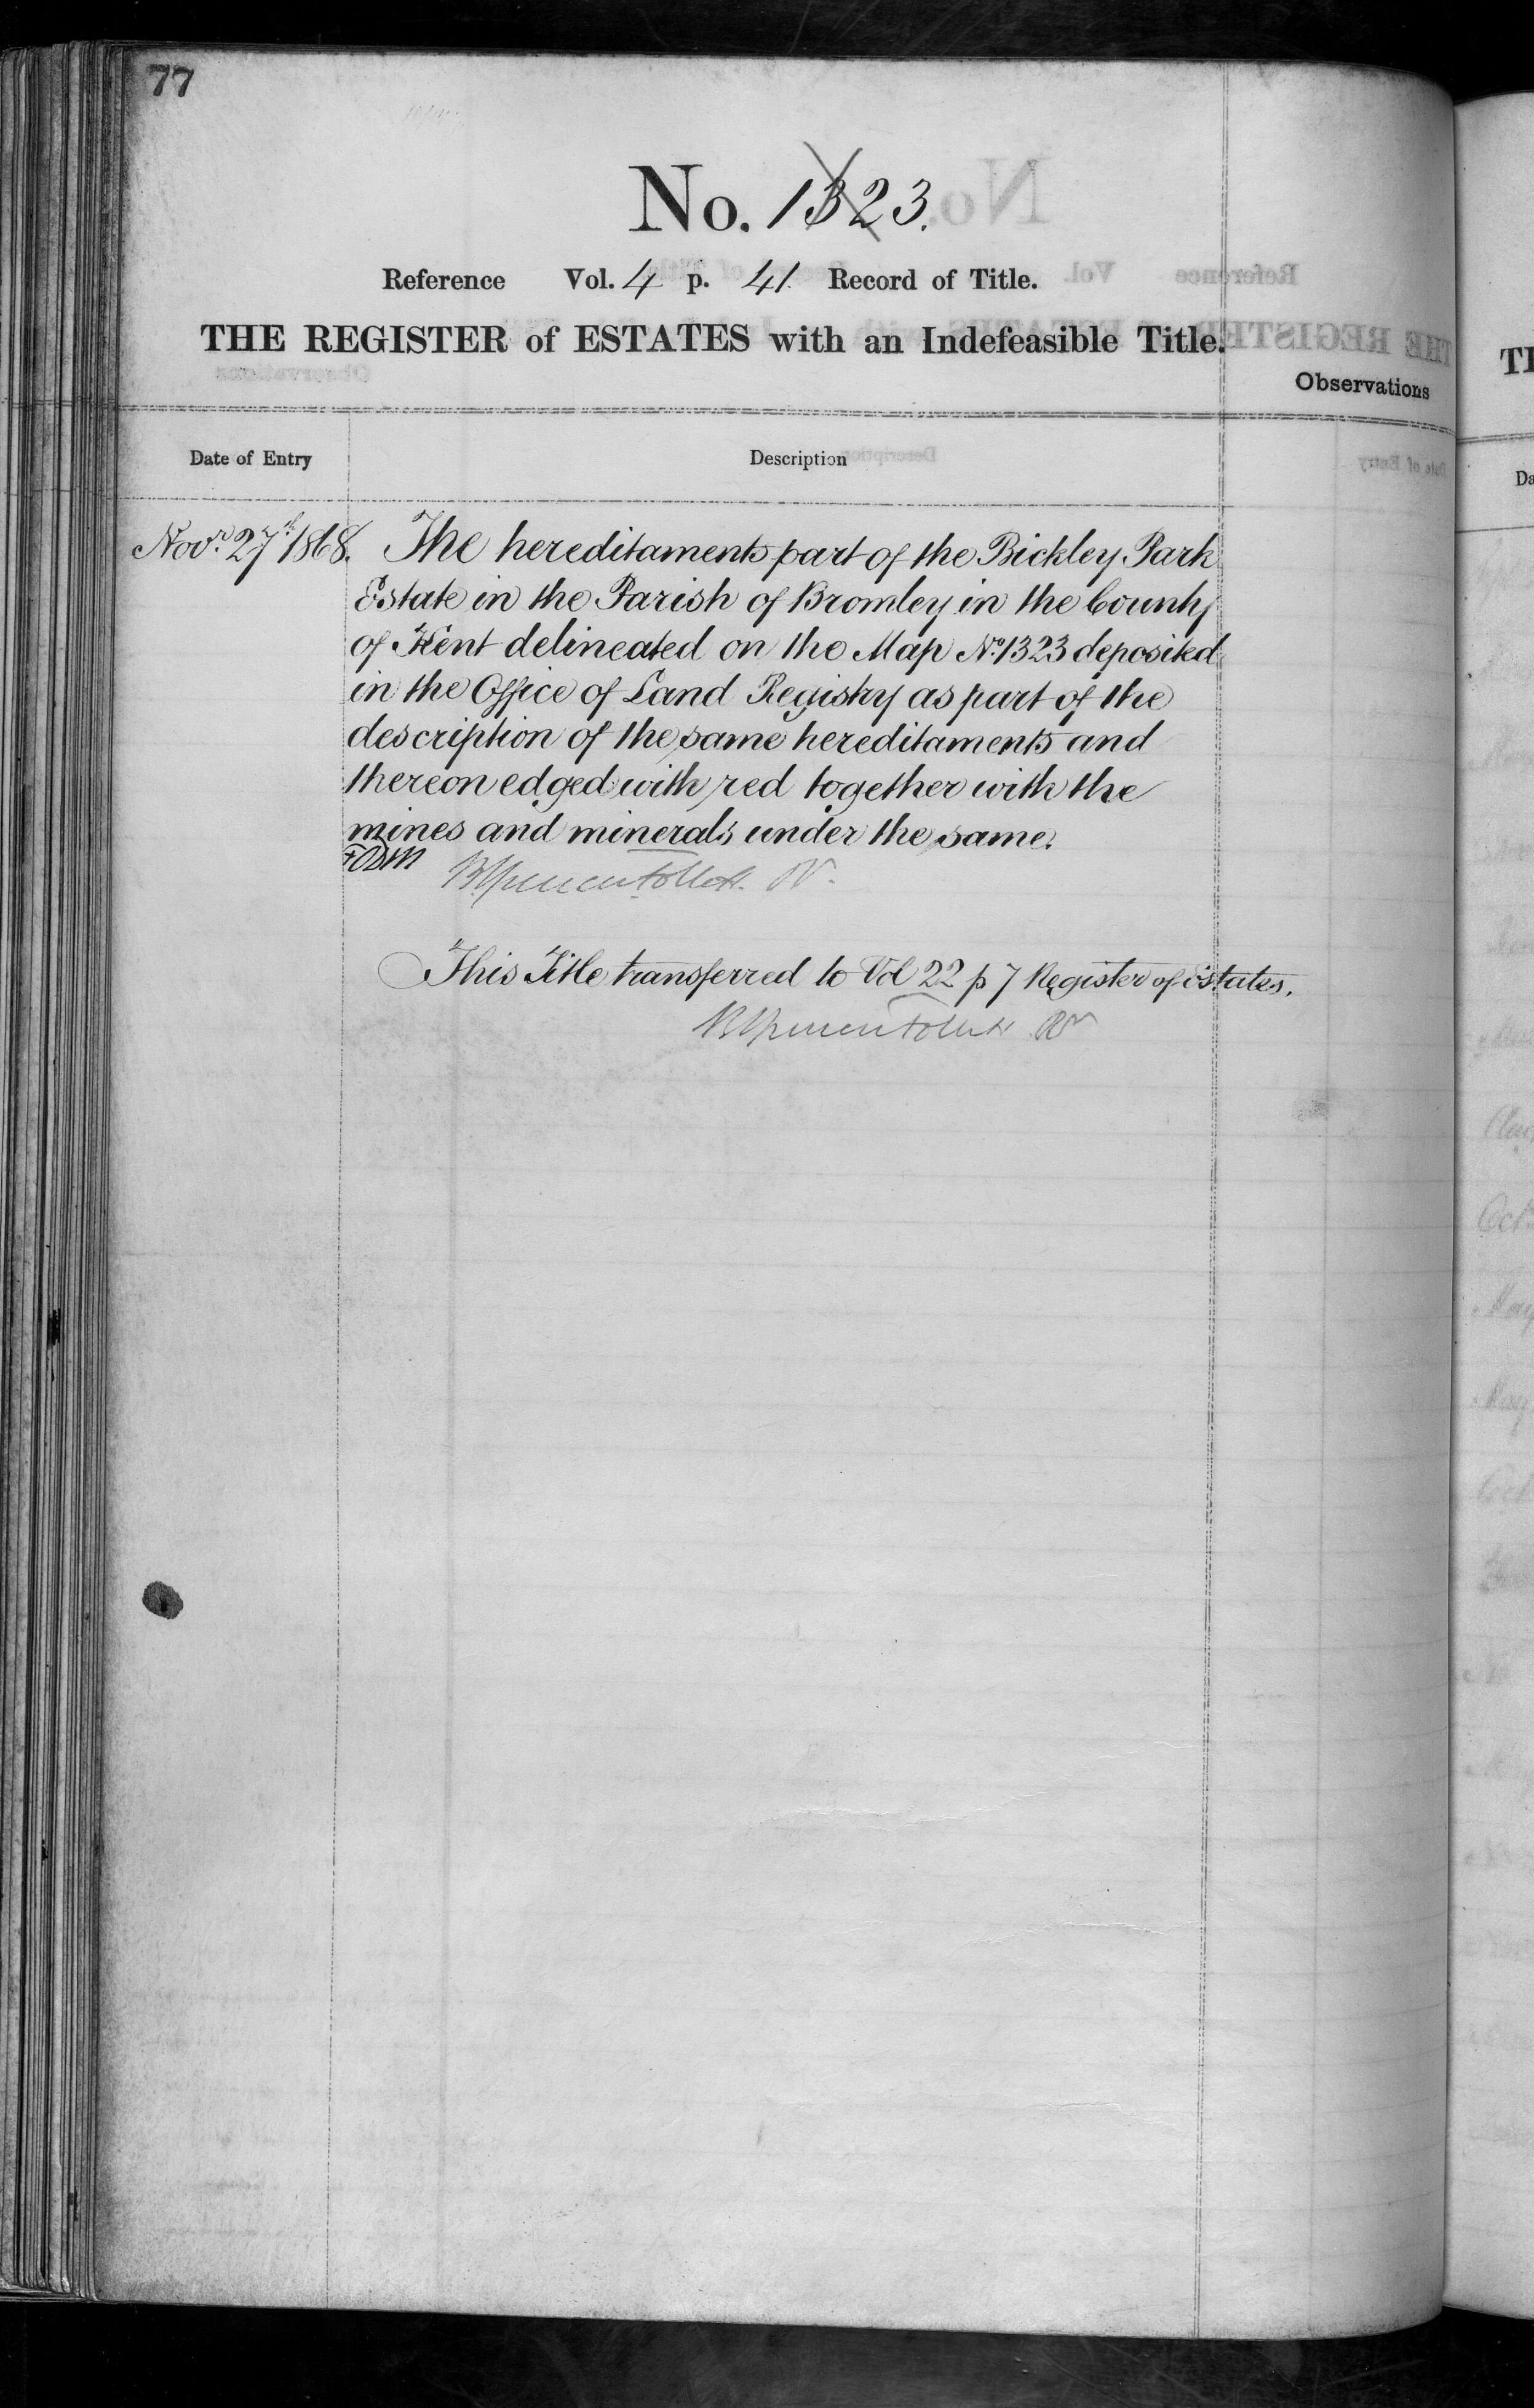 77
No. 1323.
Reference Vol. 4 p. 41 Record of Title.
THE REGISTER of ESTATES with an Indefeasible Title.
Observations
Date of Entry Description
Novr. 27th 1868. The hereditaments part of the Bickley Park
Estate in the Parish of Bromley in the County
of Kent delineated on the Map No. 1323 deposited
in the Office of Land Registry as part of the
description of the same hereditaments and
thereon edged with red together with the
mines and minerals under the same.
This Title transferred to Vol 22 p 7 Register of Estates.